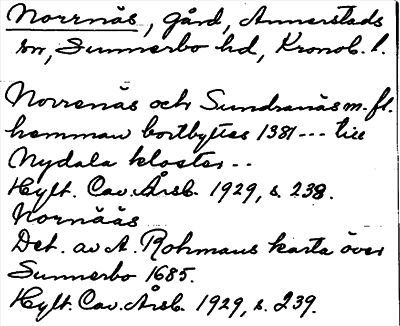 Norrnäs, gård, Annerstads
sn, Sunnerbo hd, Kronob. l.
Norrenäs och Sundranäs m. fl.
hemman bortbyttes 1381 --- till
Nydala kloster --
Hylt. Cav. Årsb. 1929, s. 238.
Nornääs
Det. av A. Rohmans karta över
Sunnerbo 1685.
Hylt. Cav. Årsb. 1929, s. 239.